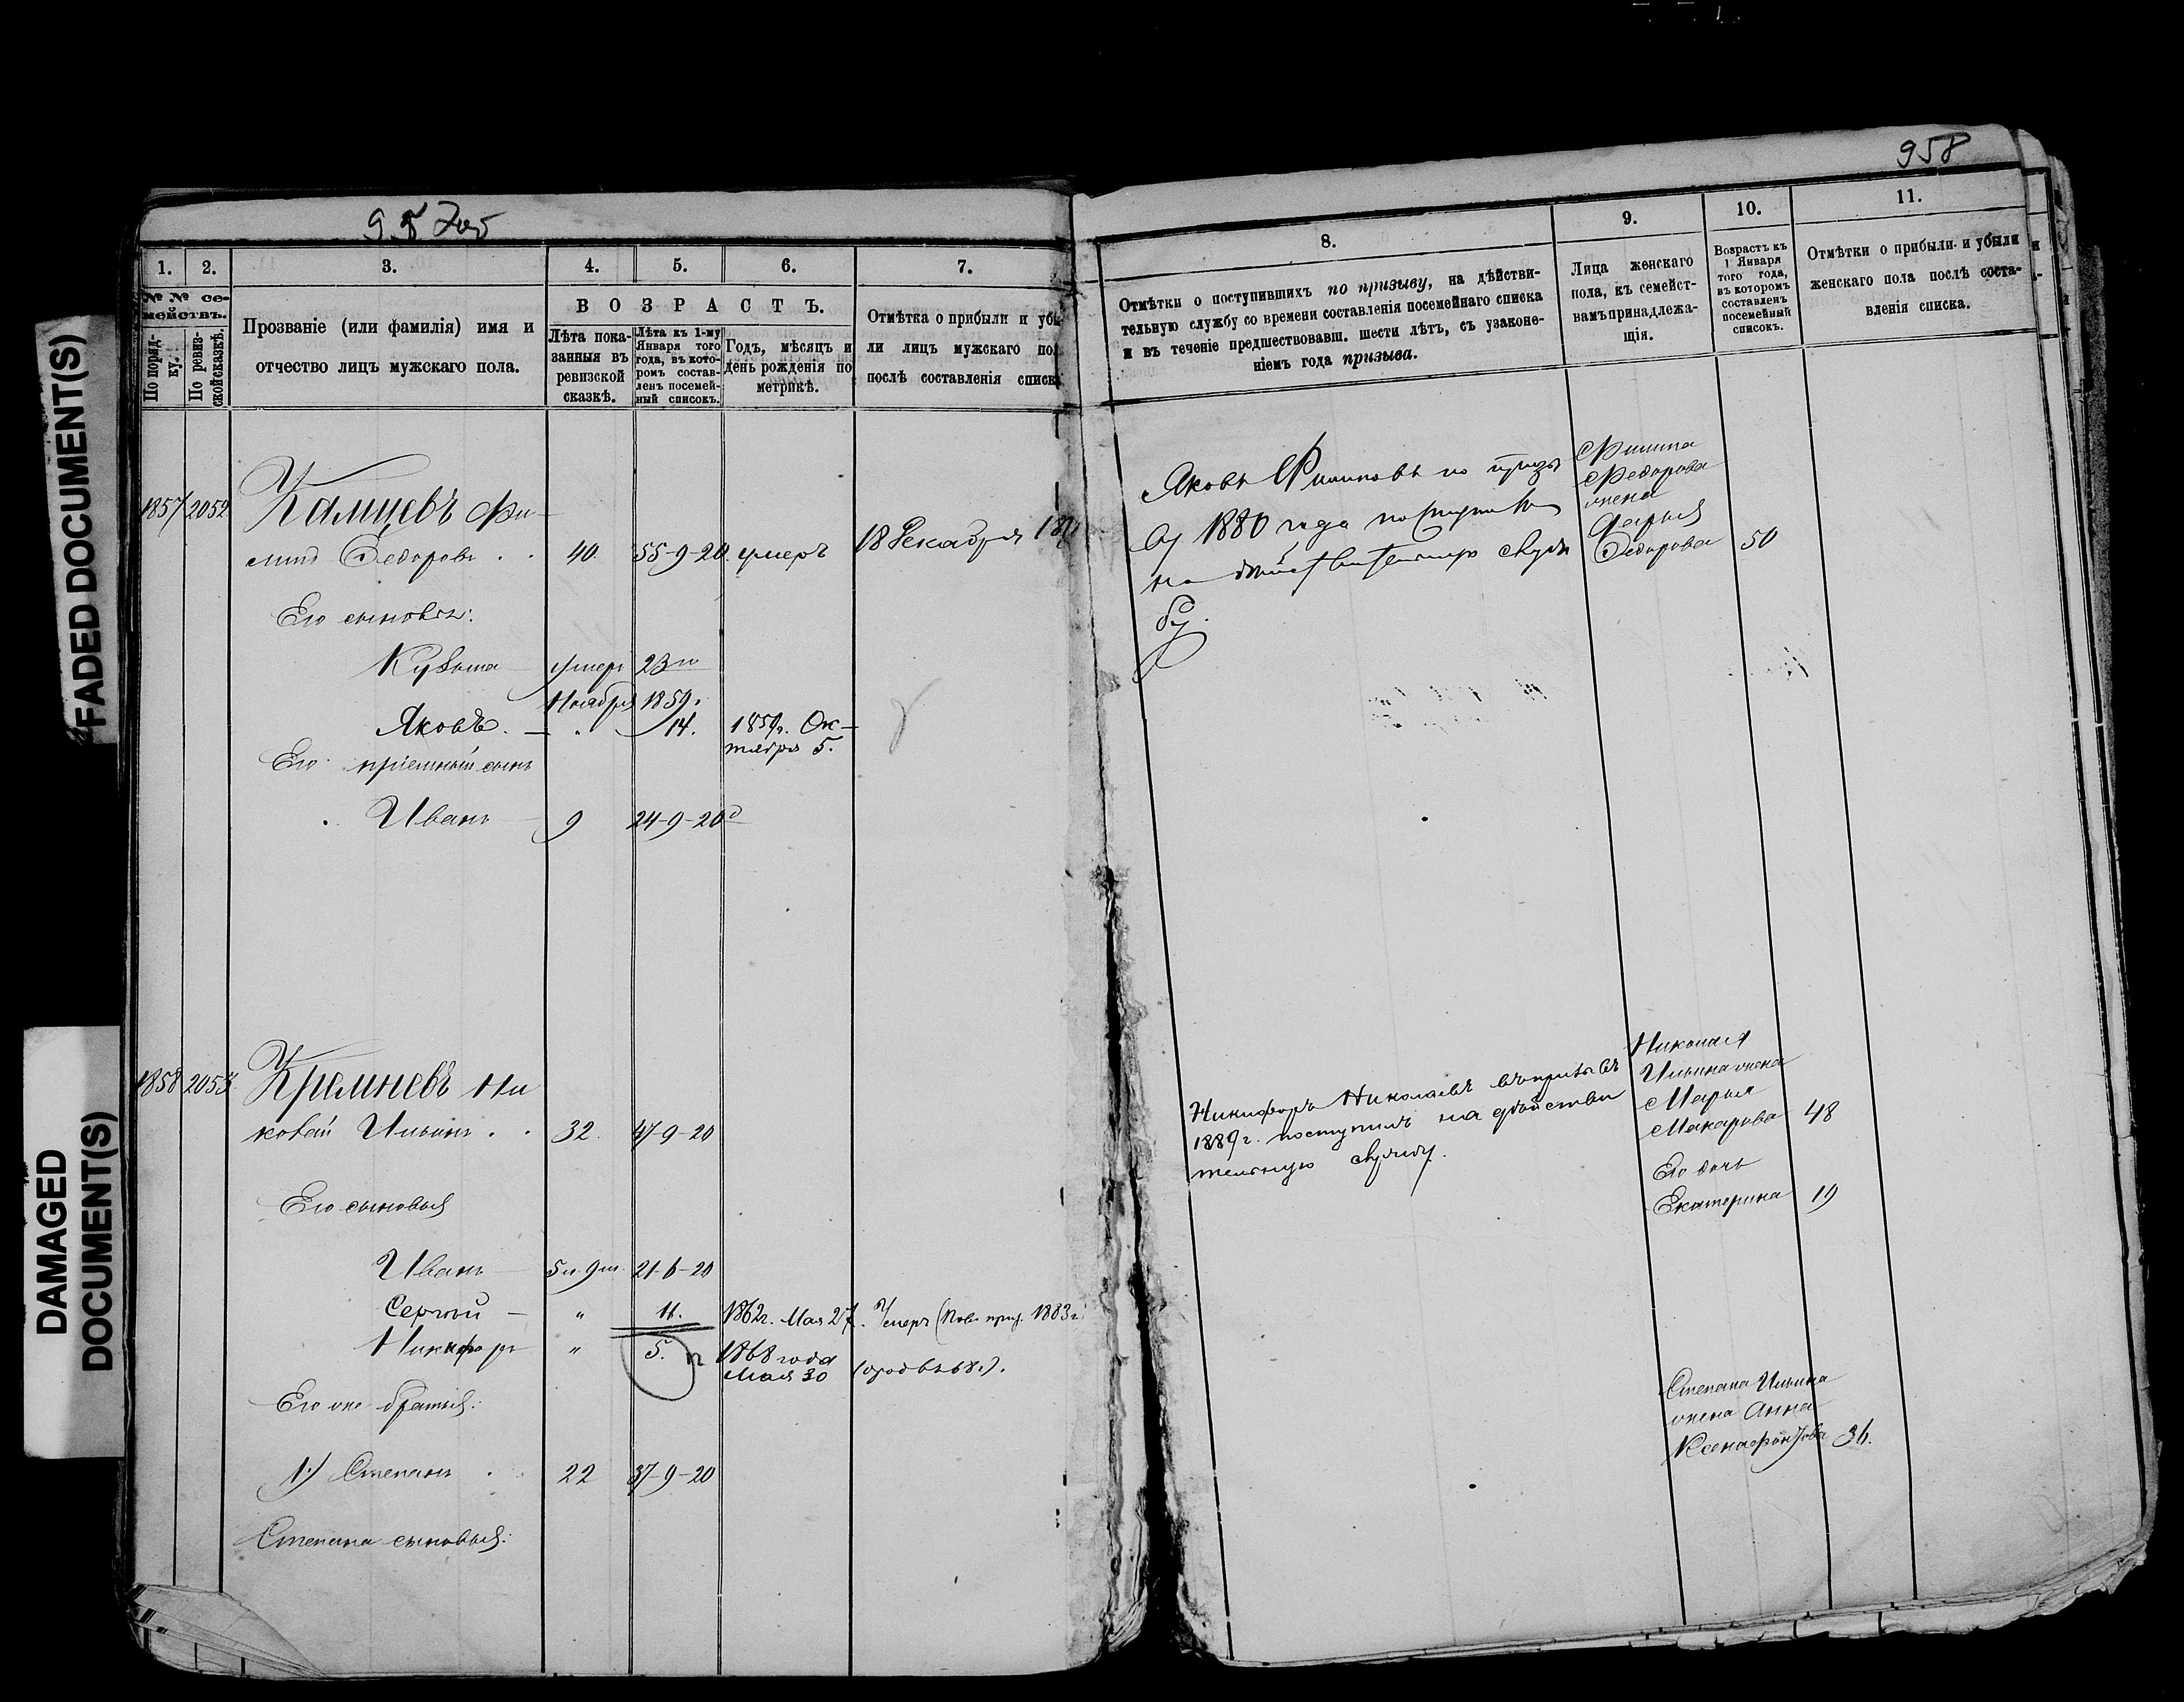 FADED DOCUMENT(S)
DAMAGED
DOCUMENT(S)
958
1.
2.
3.
4.
5.
6.
7.
№ № се-
мействъ.
По поряд-
ку.
По ревиз-
ской сказкѣ.
Прозваніе (или фамилія) имя и
отчество лицъ мужскаго пола.
ВОЗРАСТЪ.
Лѣта пока-
занныя въ
ревизской
сказкѣ.
Лѣта къ 1-му
Января того
года, въ кото-
ромъ состав-
ленъ посемей-
ный списокъ.
Годъ, мѣсяцъ и
день рожденія по
метрикѣ.
Отмѣтка о прибыли и убы
ли лицъ мужскаго пол
послѣ составленія списк
1857 2052
Камцевъ Фи-
липъ Ѳедоровъ . . 40. 55-9-20. умеръ 18 Декабря
Его сыновья:
Кузьма умеръ 23го
Ноября 1859г.
Яковъ. — " 14. 1859г. Ок-
тября 5.
Его пріемный сынъ
Иванъ 9 24-9-20
1858 2053
Кремневъ Ни
колай Ильинъ . . 32. 47-9-20
Его сыновья
Иванъ 5 и 9 м. 21-6-20
Сергѣй — " 11. 1862г. Мая 27. Умеръ (Пов. приз. 1883г.)
Никифоръ " 5. 1868 года
Мая 30
Его же братья:
1.) Степанъ . 22 37-9-20
Степана сыновья:
8.
9.
10.
11.
Отмѣтки о поступившихъ по призыву, на дѣйстви-
тельную службу со времени составленія посемейнаго списка
и въ теченіе предшествовавш. шести лѣтъ, съ узаконе-
ніемъ года призыва.
Лица женскаго
пола, къ семейст-
вамъ принадлежа-
щія.
Возрастъ къ
1 Января
того года,
въ которомъ
составленъ
посемейный
списокъ.
Отмѣтки о прибыли и убыли
женскаго пола послѣ соста-
вленія списка.
Яковъ Филиповъ по призы
ву 1880 года поступилъ
на дѣйствительную служ
бу.
Филипа
Федорова
жена
Дарья
Ѳедорова 50
Никифоръ Николаевъ въ призывъ
1889г. поступилъ на дѣйстви
тельную службу.
Николая
Ильина жена
Марья
Макарова 48
Его дочь
Екатерина 19
Степана Ильина
жена Анна
Ксенофонтова 36.